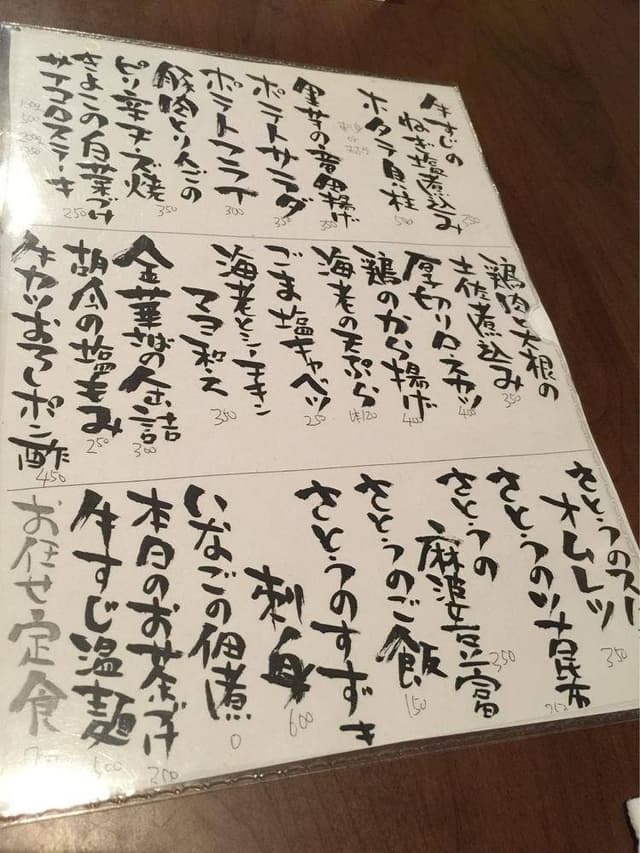 牛すじの
ねぎ塩煮込み
350
ホタテ貝柱
500
里芋の唐揚げ
350
ポテトサラダ
350
ポテトフライ
300
豚肉とりんごの
ピリ辛チーズ焼
350
きよこの白菜づけ
250
サイコロステーキ
鶏肉と大根の
土佐煮込み
350
厚切りロースカツ
400
鶏のから揚げ
400
海老の天ぷら
1本120
ごま塩キャベツ
250
海老とシーチキン
マヨネーズ
350
金華さばの缶詰
300
胡瓜の塩もみ
250
牛カツおろしポン酢
450
さとうの
オムレツ
350
さとうの
さとうの
麻波豆富
350
さとうのご飯
150
さとうのすずき
刺身
600
いなごの佃煮
0
本日のお茶づけ
350
牛すじ温麺
500
お任せ定食